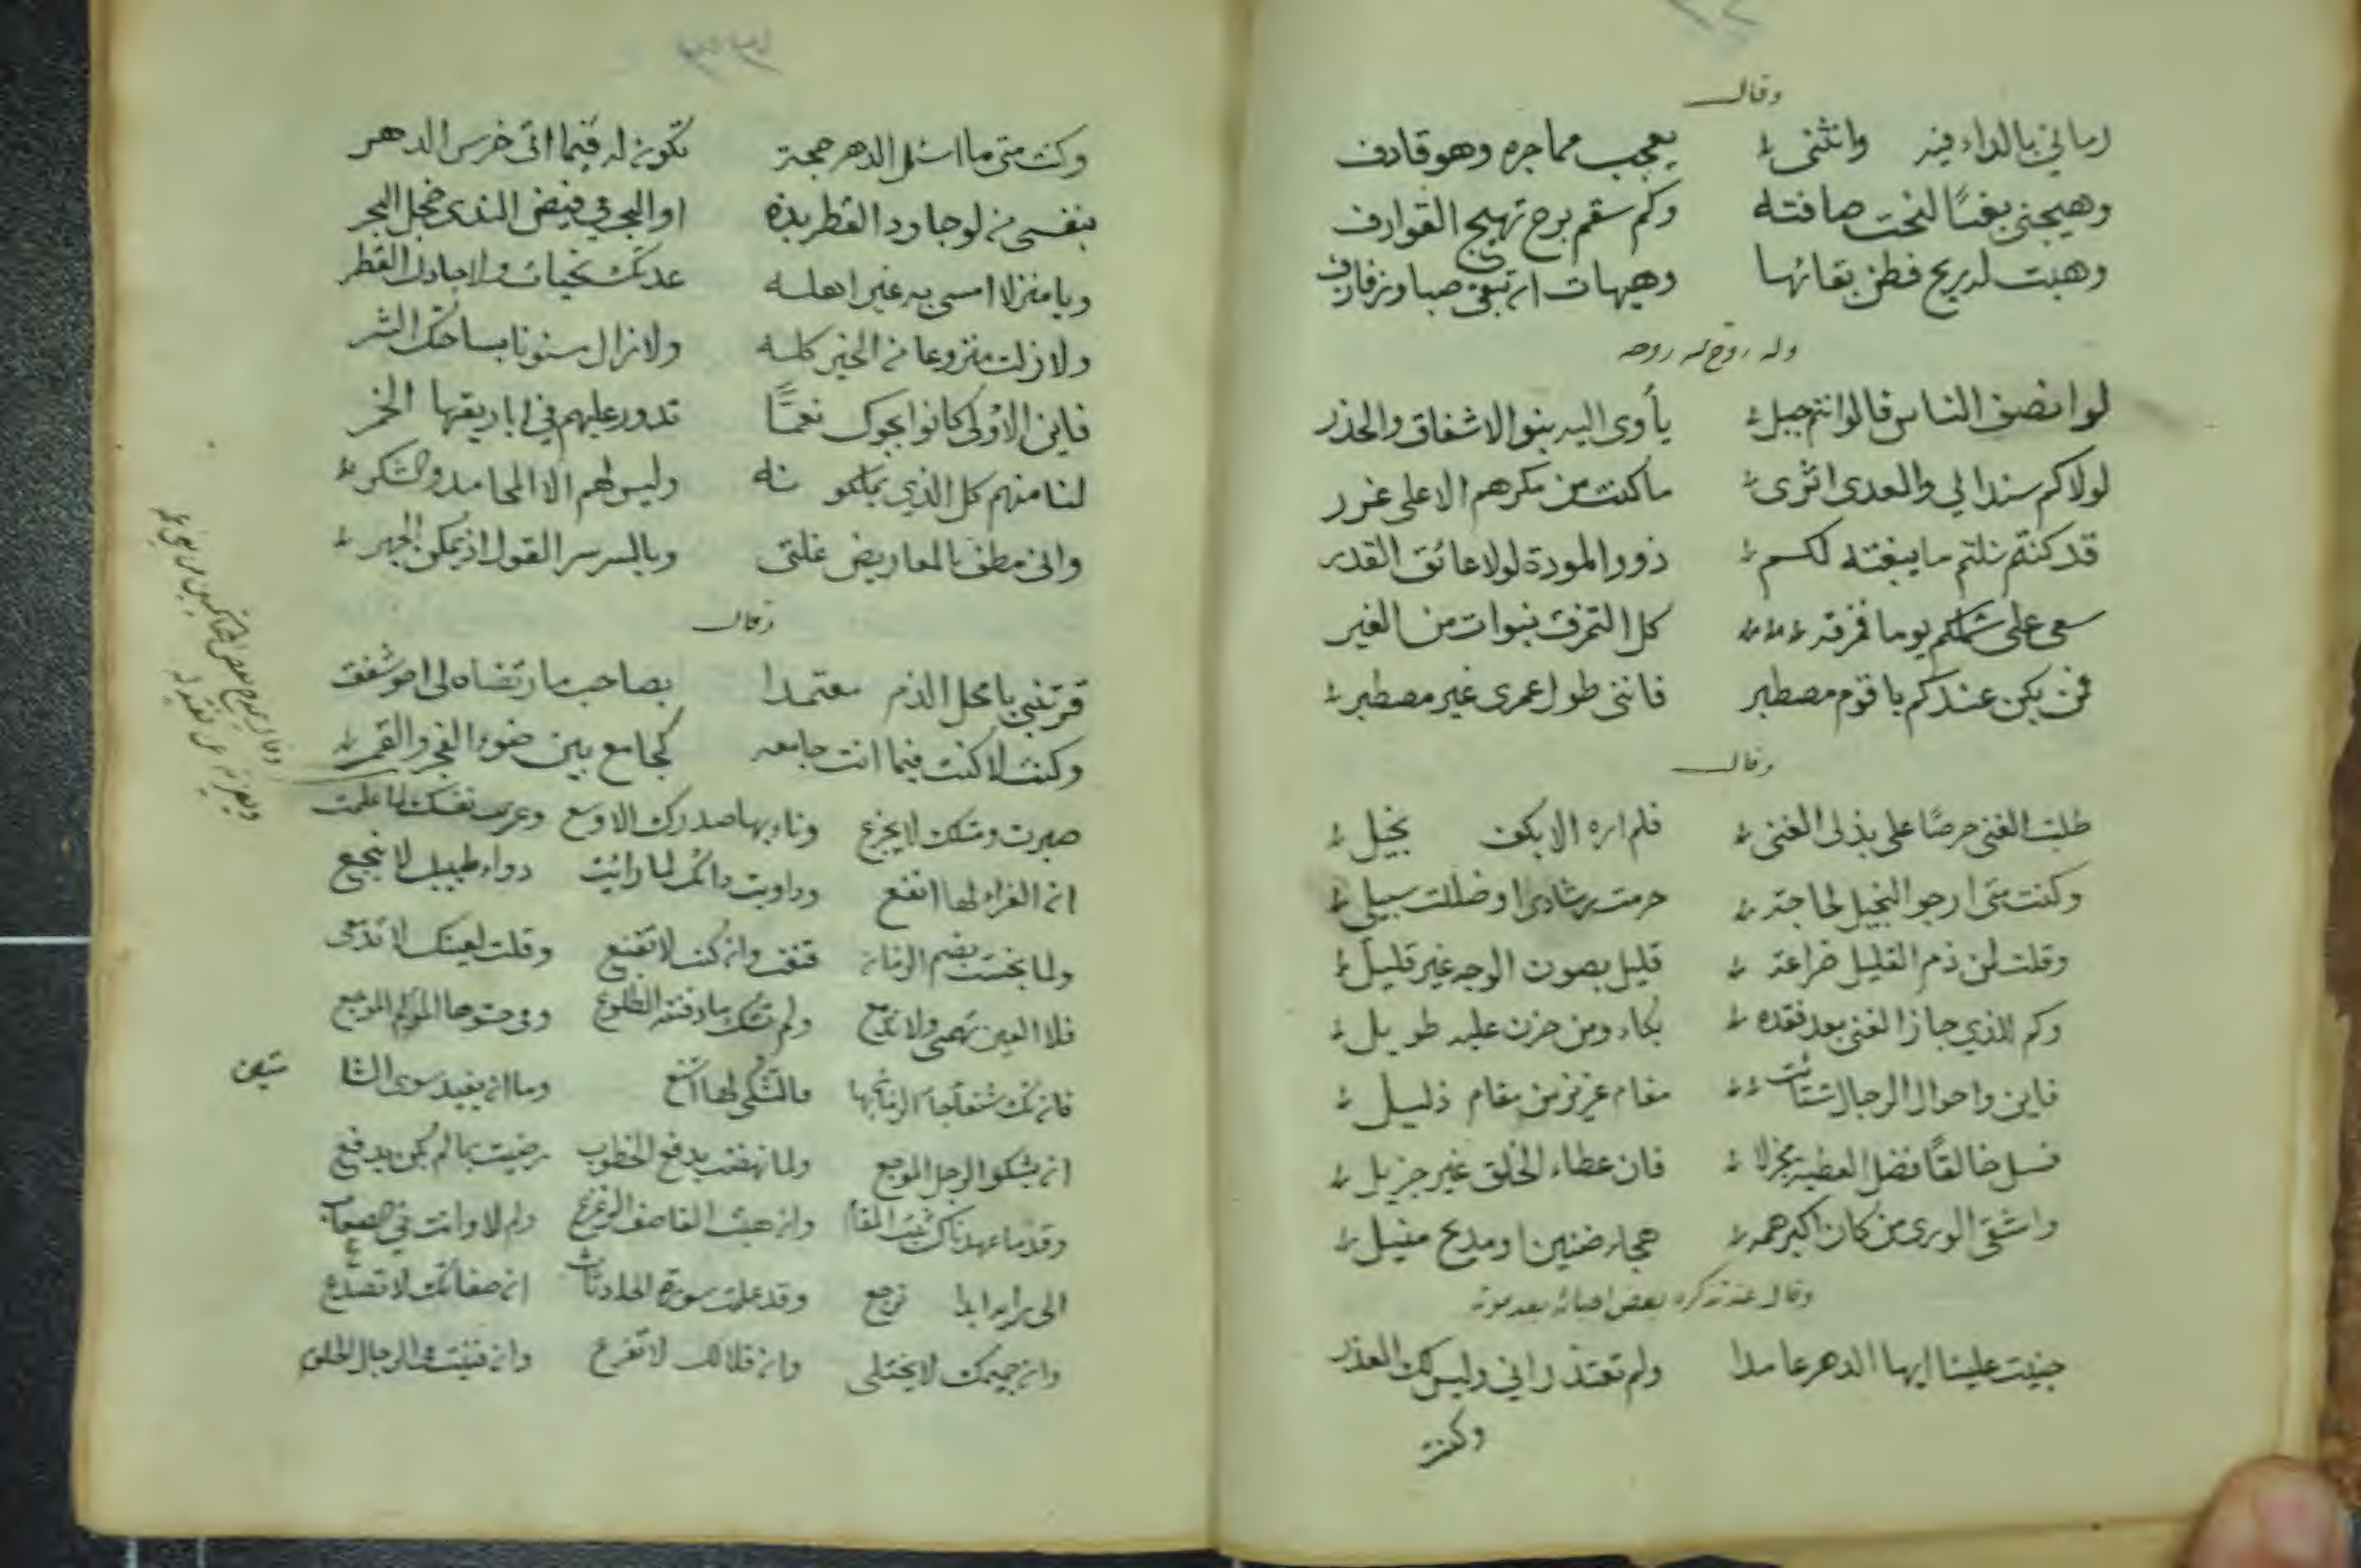 وقال
رماني بالداء فيه وانثنى يعجب مما جره وهو قارف
وهيجني بغيًا لنحت صافته وكم سقم برح تهيج القوارف
وهبت له ريح فظن بقائها وهيهات ان تبقى صبا وزفازف
وله روح الله روحه
لو انصف الناس قالوا انتم جبل يأوى اليه بنو الاشفاق والحذر
لولاكم سندا لي والعدى اثرى ما كنت من مكرهم الا على غرر
قد كنتم نلتم ما يبغته لكم ذوو المودة لولا عائق القدر
سعى على شملكم يوما ففرقه كل التفرق نبوات من الغير
فمن يكن عندكم يا قوم مصطبر فانني طول عمري غير مصطبر
وقال
طلبت الغنى حرصًا على بذلى الغنى فلم اره الا بكف بخيل
وكنت متى ارجو البخيل لحاجة حرمت رشادى او ضللت سبيلي
وقلت لمن ذم القليل ضراعة قليل يصون الوجه غير قليل
وكم للذي جاز الغنى بعد فقده بكاء ومن حزن عليه طويل
فاين واحوال الرجال تشتتت مقام عزيز من مقام ذليل
فسل خالقًا فضل العطية مجزلا فان عطاء الخلق غير جزيل
واشقى الورى من كان اكبر همه هجاء ضنين او مديح منيل
وقال عند تذكره بعض احبائه بعد موته
جنيت علينا ايها الدهر عامدا ولم تعتذر اني وليس لك العذر
وكنت
وكنت متى ما اسئل الدهر حجة تكون له فيما اتى خرس الدهر
بنفسي من لو جاود القطر بذه او البحر في فيض الندى خجل البحر
ويا منزلا امسى به غير اهله عدتك تحيات ولا جادك القطر
ولا زلت منزوعا من الخير كله ولا زال مسنونا بساحتك الشر
فاين الاولى كانوا بجوك نعمًا تدور عليهم في اباريقها الخمر
لنا منهم كل الذي يملكونه وليس لهم الا المحامد والشكر
واني مطف بالمعاريض غلتي وبالسر سر القول اذ يمكن الجهر
وقال
قرنتني يا محل الذم معتمدا بصاحب ما رتضاه لى امو شفق
وكنت لا كنت فيما انت جامعه كجامع بين ضوء الفجر والقمر
صبرت ومثلك لا يجزع وناء بها صدرك الاوسع وعزيت نفسك لما علمت
ان العزاء لها انفع وداويت دائك لما رائيت دواء طبيبك لا ينجع
ولما بخست بضم الزمان قنعت وان كنت لا تقنع وقلت لعينك لا تدمعى
فلا العين تهمى ولا تدمع ولم تشك ما دفنته الضلوع وفى حشوها المؤلم الموجع
فان تك شنعاء جاء الزمان بها فالتشكي لها اشنع وما ان يفيد سوى الشا
متين
ان يشكو الرجل الموجع ولما نهضت بدفع الخطوب رضيت بما لم يكن يدفع
وقدما عهدناك ثبت المقام وان هبت العاصف الزعزع ولم لا وانت في الصعاب
الى رايه ابدا نرجع وقد علمت سورة الحادثات ان صفاتك لا تصدع
وان حميمك لا يختلى وان قلالك لا تفرع وان فنيت في الرجال الحلوم